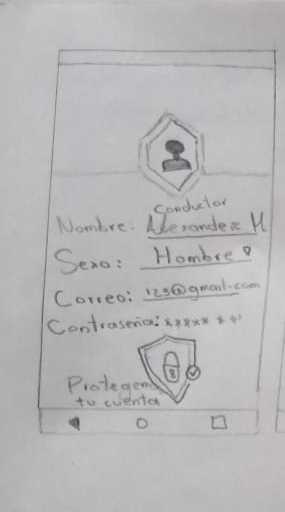 Conductor
Nombre: Alexander M
Sexo: Hombre
Correo: 123@gmail.com
Contraseña: *******
Protegemos
tu cuenta